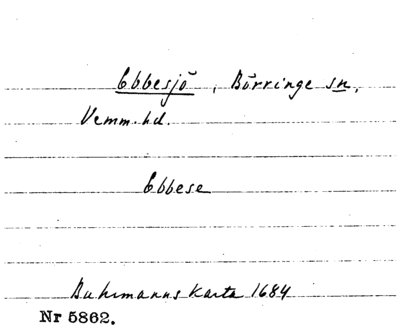 Ebbesjö, Börringe sn,
Vemm. hd.
Ebbese
Buhrmanns karta 1684
Nr 5862.